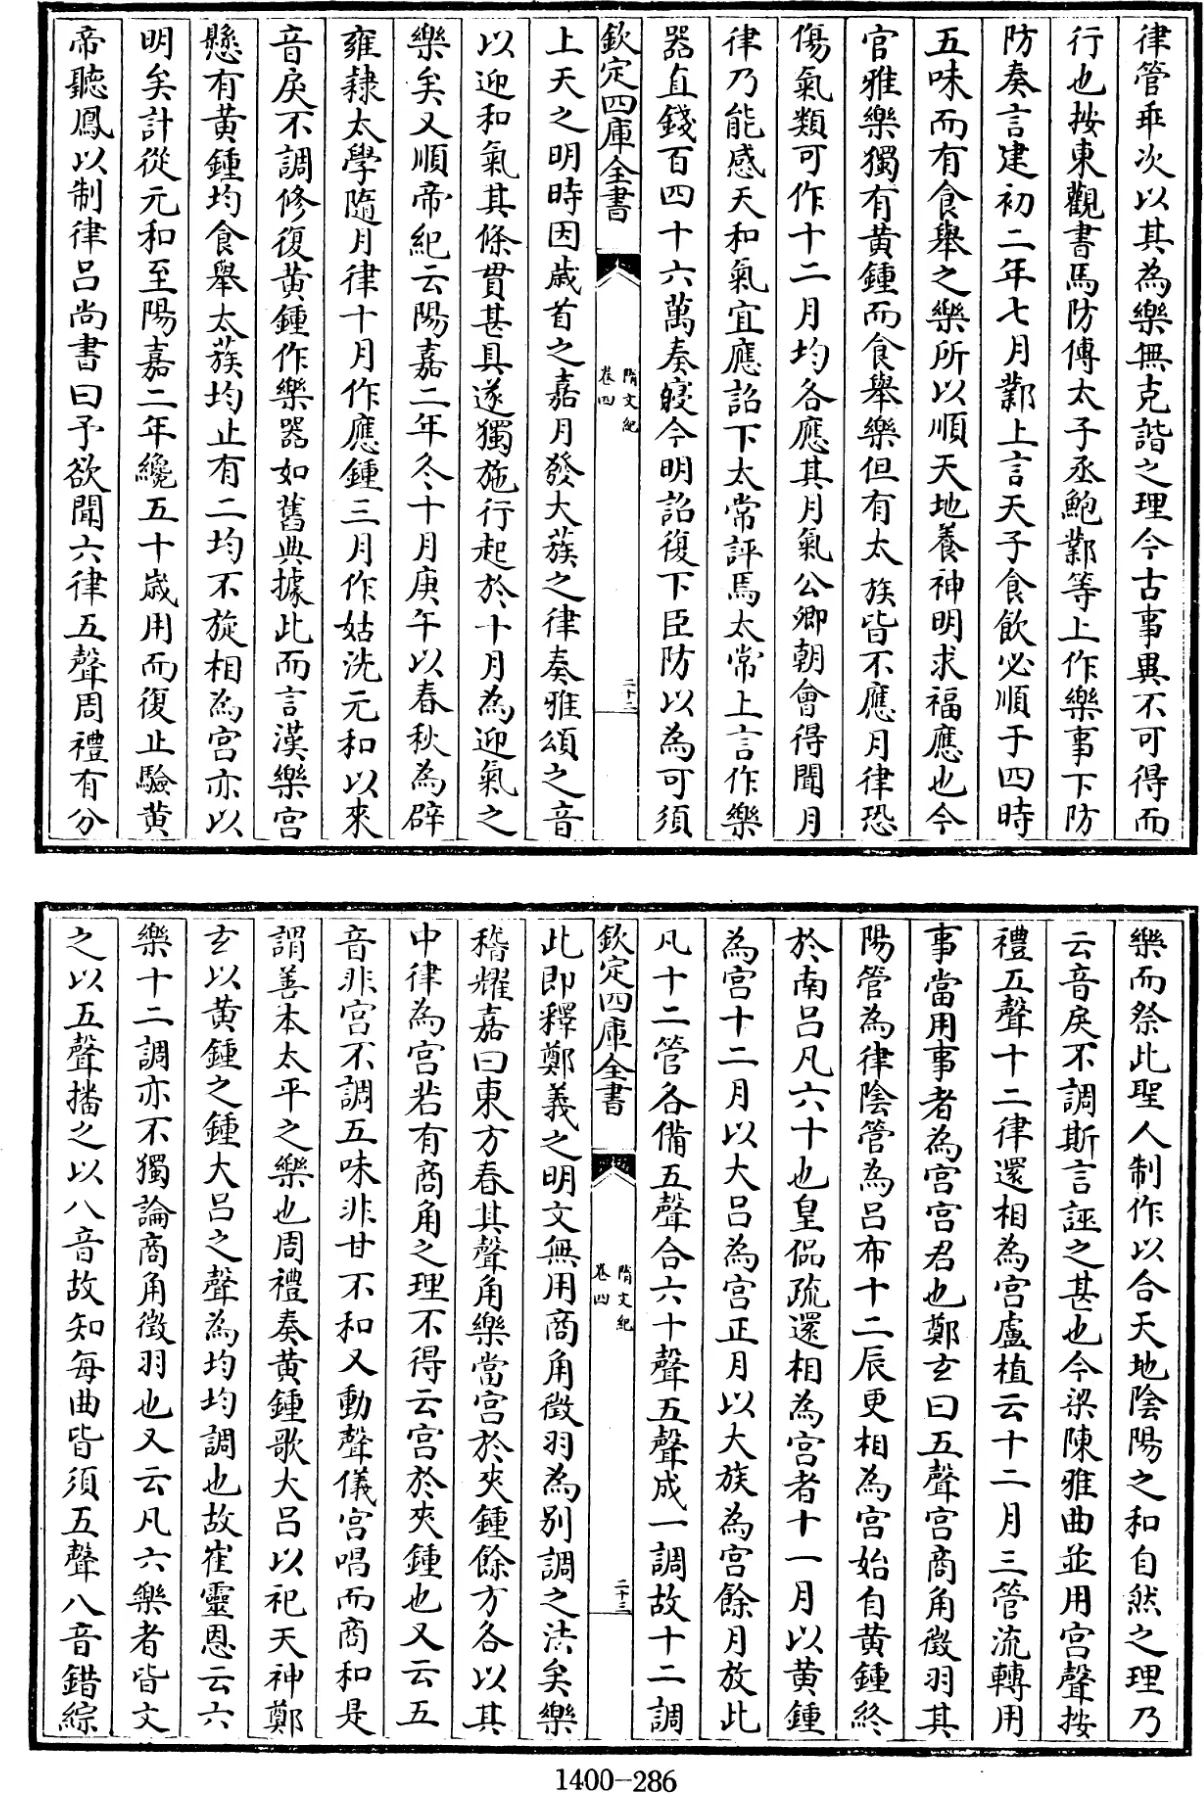 律管乖次以其為樂無克諧之理今古事異不可得而
行也按東觀書馬防傳太子丞鮑鄴等上作樂事下防
防奏言建初二年七月鄴上言天子食飲必順于四時
五味而有食舉之樂所以順天地養神明求福應也今
官雅樂獨有黄鍾而食舉樂但有太蔟皆不應月律恐
傷氣類可作十二月均各應其月氣公卿朝會得聞月
律乃能感天和氣宜應詔下太常評焉太常上言作樂
器直錢百四十六萬奏寢今明詔復下臣防以為可須
欽定四庫全書
隋文紀
卷四
二十二
上天之明時因歳首之嘉月發大蔟之律奏雅頌之音
以迎和氣其條貫甚具遂獨施行起於十月為迎氣之
樂矣又順帝紀云陽嘉二年冬十月庚午以春秋為辟
雍隷太學隨月律十月作應鍾三月作姑洗元和以來
音戾不調修復黄鍾作樂器如舊典據此而言漢樂宫
懸有黄鍾均食舉太蔟均止有二均不旋相為宫亦以
明矣計從元和至陽嘉二年纔五十歳用而復止驗黄
帝聽鳳以制律吕尚書曰予欲聞六律五聲周禮有分
樂而祭此聖人制作以合天地陰陽之和自然之理乃
云音戾不調斯言誣之甚也今梁陳雅曲並用宫聲按
禮五聲十二律還相為宫盧植云十二月三管流轉用
事當用事者為宫宫君也鄭𤣥曰五聲宫商角徵羽其
陽管為律陰管為吕布十二辰更相為宫始自黄鍾終
於南吕凡六十也皇侃疏還相為宫者十一月以黄鍾
為宫十二月以大吕為宫正月以大蔟為宫餘月放此
凡十二管各備五聲合六十聲五聲成一調故十二調
欽定四庫全書
隋文紀
卷四
二十三
此即釋鄭義之明文無用商角徵羽為别調之法矣樂
稽耀嘉曰東方春其聲角樂當宫於夾鍾餘方各以其
中律為宫若有商角之理不得云宫於夾鍾也又云五
音非宫不調五味非甘不和又動聲儀宫唱而商和是
謂善本太平之樂也周禮奏黄鍾歌大吕以祀天神鄭
𤣥以黄鍾之鍾大吕之聲為均均調也故崔靈恩云六
樂十二調亦不獨論商角徵羽也又云凡六樂者皆文
之以五聲播之以八音故知每曲皆須五聲八音錯綜
1400-286